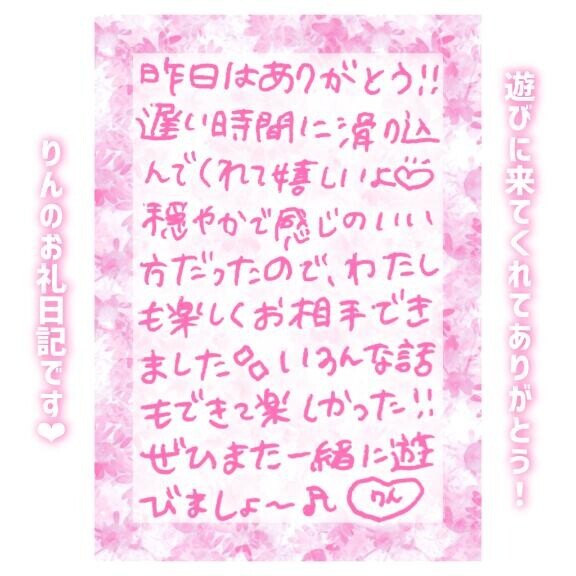 遊びに来てくれてありがとう！
昨日はありがとう!!
遅い時間に滑り込
んでくれて嬉しいよ♡
穏やかで感じのいい
方だったので、わたし
も楽しくお相手でき
ました いろんな話
もできて楽しかった!!
ぜひまた一緒に遊
びましょ〜♬
りん
りんのお礼日記です❤